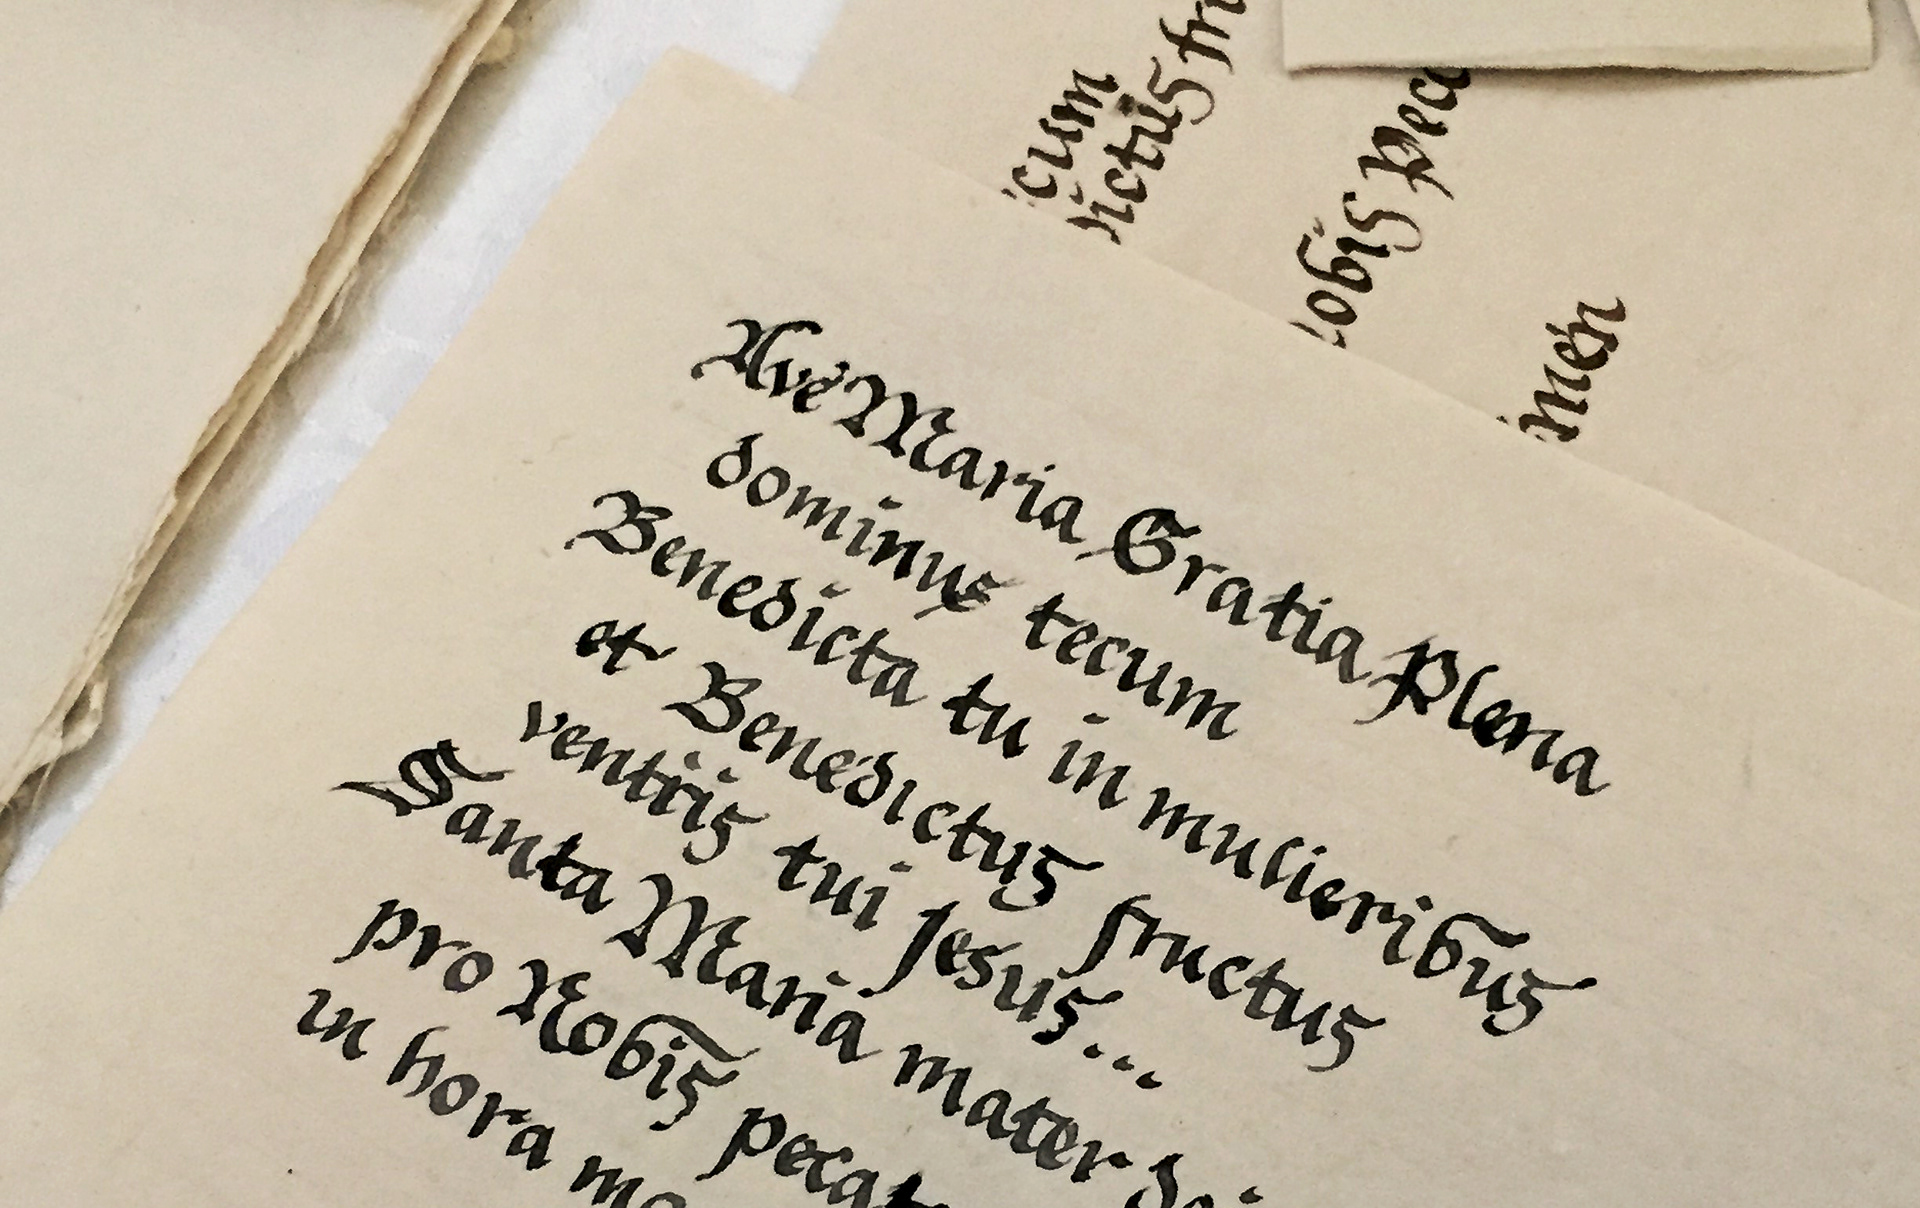 Ave Maria Gratia Plena
dominus tecum
Benedicta tu in mulieribus
et Benedictus fructus
ventris tui Jesus...
Santa Maria mater
pro Nobis
in hora